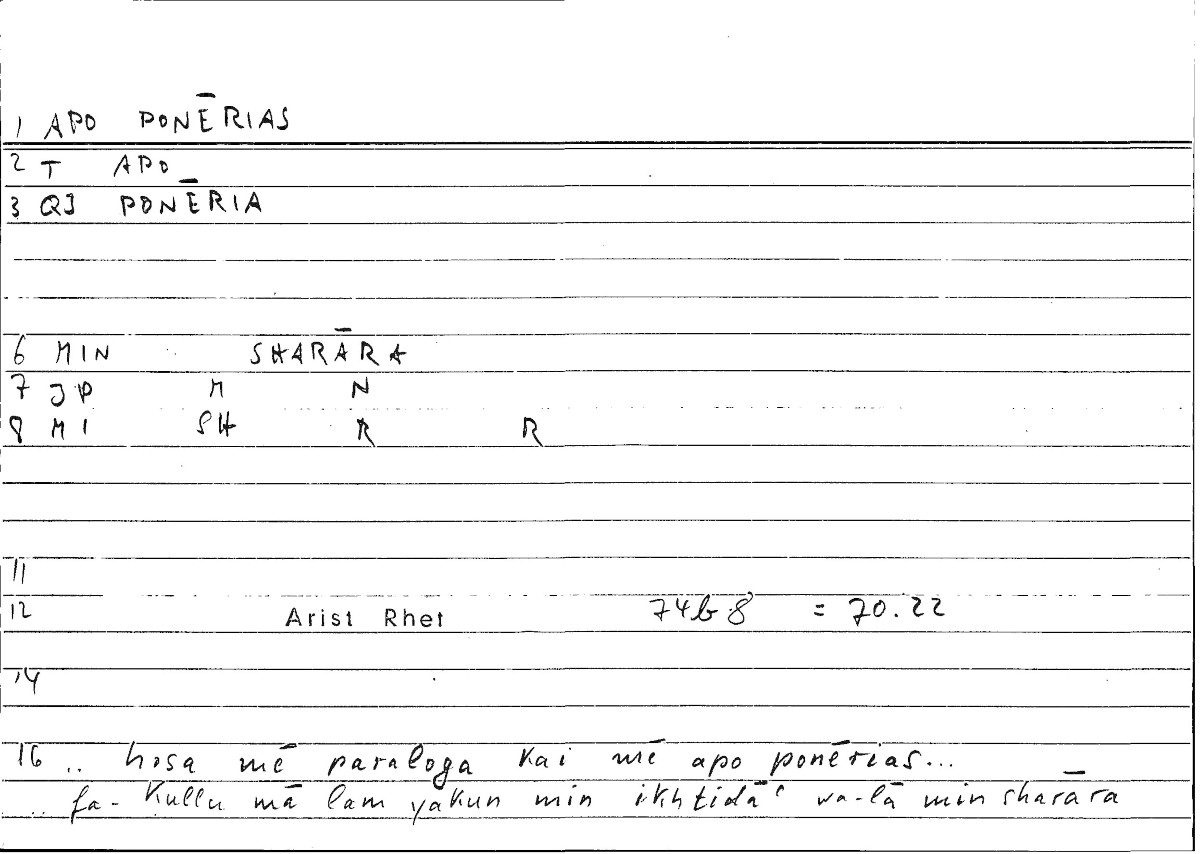 1 APO PONĒRIAS
2 T APO
3 QJ PONĒRIA
6 MIN SHARĀRA
7 JP M N
8 MI SH R R
11
12 Arist Rhet 74b8 = 70.22
14
16 .. hosa mē paraloga kai mē apo ponērias...
.. fa-Kullu mā lam yakun min ikhtidāʿ wa-lā min sharāra